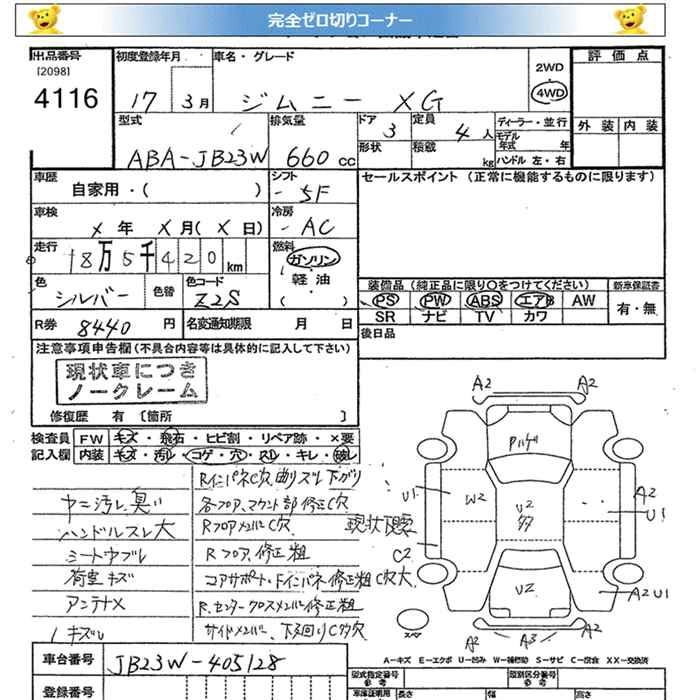 完全ゼロ切りコーナー
出品番号 初度登録年月 車名・グレード 評価点
[2098] 2WD
4116 17 3月 ジムニー XG 4WD
型式 排気量 ドア 定員 ディーラー・並行 外装 内装
3 4人 モデル年式 年
ABA-JB23W 660cc 形状 積載 kg ハンドル 左・右
車歴 シフト セールスポイント (正常に機能するものに限ります)
自家用・( ) 5F
車検 冷房
X年 X月(X日) AC
走行 燃料
18万5千420km ガソリン
軽油
色 色替 色コード ( ) 装備品 (純正品に限り○をつけてください) 新車保証書
シルバー Z2S PS PW ABS エアB AW 有・無
SR ナビ TV カワ
R券 8440円 名変通知期限 月 日 後日品
注意事項申告欄 (不具合内容等は具体的に記入して下さい)
現状車につき
ノークレーム
修復歴 有 [箇所 ]
検査員 FW キズ・飛石・ヒビ割・リペア跡・×要
記入欄 内装 キズ・汚レ・コゲ・穴・スレ・キレ・破レ
RインパネC穴、曲りズレ下がり
ヤニ汚レ臭い 各フロア、マウント部修正C穴
ハンドルスレ大 RフロアメンバーC穴 現状下見要
シートウブレ Rフロア、修正粗
荷室キズ コアサポート・Fインパネ修正粗C穴大
アンテナX R、センタークロスメンバー修正粗
キズ サイドメンバー、下回りC穴多欠
A2 A2
パハゲ
U1 W2 U2 多 A2 U1
C2
U2 A2U1
スペア A2 A3 A2
A-キズ E-エクボ U-凹み W-補修跡 S-サビ C-腐食 X X-交換済
車台番号 JB23W-405128 型式指定番号 参考 類別区分番号 参考
登録番号 車庫証明用 長さ 幅 高さ